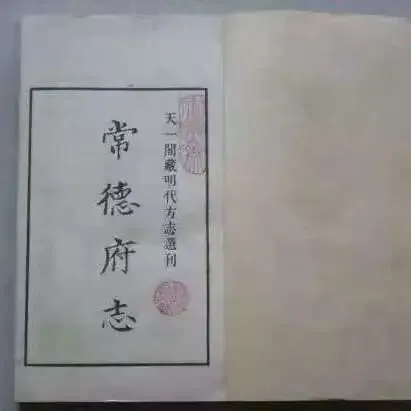 天一閣藏明代方志選刊
常德府志